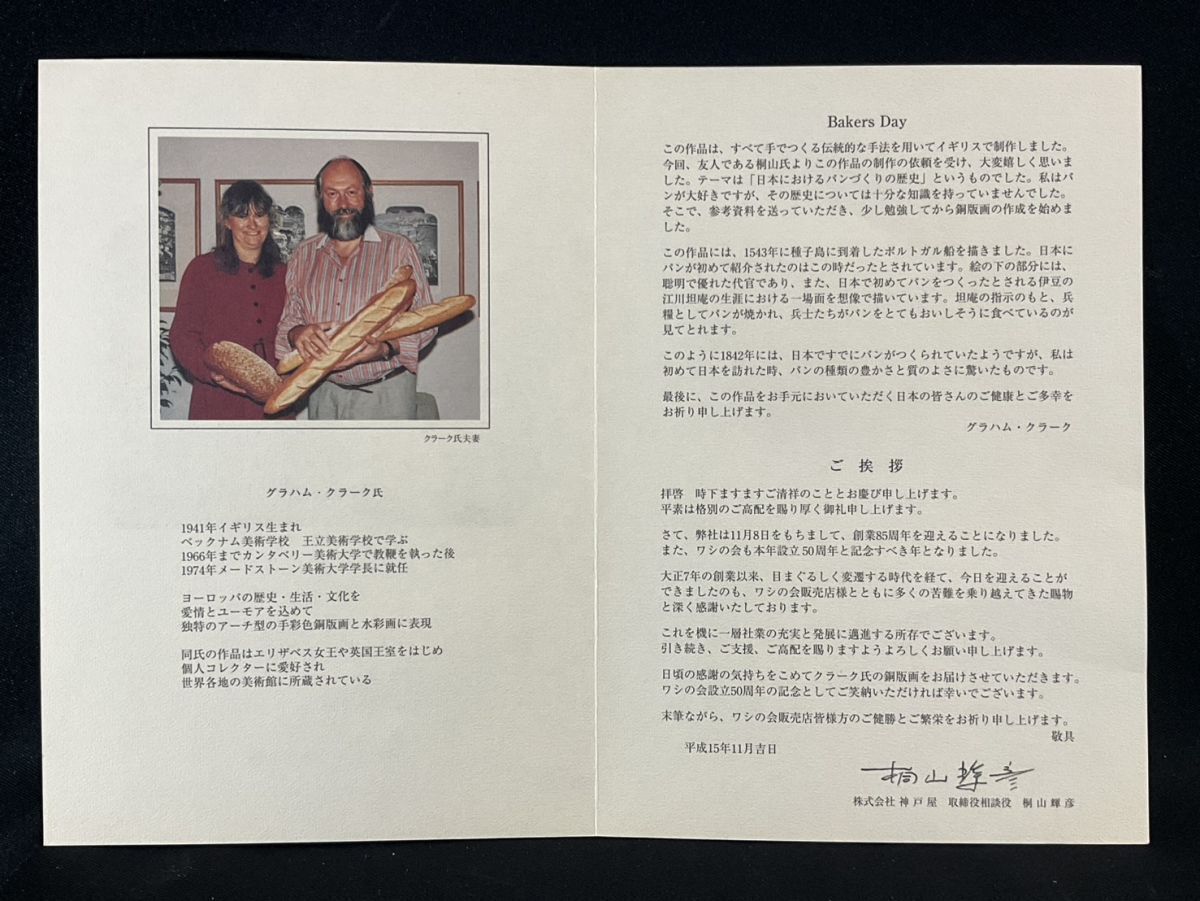 クラーク氏夫妻
グラハム・クラーク氏
1941年イギリス生まれ
ベックナム美術学校　王立美術学校で学ぶ
1966年までカンタベリー美術大学で教鞭を執った後
1974年メードストーン美術大学学長に就任
ヨーロッパの歴史・生活・文化を
愛情とユーモアを込めて
独特のアーチ型の手彩色銅版画と水彩画に表現
同氏の作品はエリザベス女王や英国王室をはじめ
個人コレクターに愛好され
世界各地の美術館に所蔵されている
Bakers Day
この作品は、すべて手でつくる伝統的な手法を用いてイギリスで制作しました。
今回、友人である桐山氏よりこの作品の制作の依頼を受け、大変嬉しく思いま
した。テーマは「日本におけるパンづくりの歴史」というものでした。私はパ
ンが大好きですが、その歴史については十分な知識を持っていませんでした。
そこで、参考資料を送っていただき、少し勉強してから銅版画の作成を始めま
した。
この作品には、1543年に種子島に到着したポルトガル船を描きました。日本に
パンが初めて紹介されたのはこの時だったとされています。絵の下の部分には、
聡明で優れた代官であり、また、日本で初めてパンをつくったとされる伊豆の
江川坦庵の生涯における一場面を想像で描いています。坦庵の指示のもと、兵
糧としてパンが焼かれ、兵士たちがパンをとてもおいしそうに食べているのが
見てとれます。
このように1842年には、日本ですでにパンがつくられていたようですが、私は
初めて日本を訪れた時、パンの種類の豊かさと質のよさに驚いたものです。
最後に、この作品をお手元においていただく日本の皆さんのご健康とご多幸を
お祈り申し上げます。
グラハム・クラーク
ご　挨　拶
拝啓　時下ますますご清祥のこととお慶び申し上げます。
平素は格別のご高配を賜り厚く御礼申し上げます。
さて、弊社は11月8日をもちまして、創業85周年を迎えることになりました。
また、ワシの会も本年設立50周年と記念すべき年となりました。
大正7年の創業以来、目まぐるしく変遷する時代を経て、今日を迎えることが
できましたのも、ワシの会販売店様とともに多くの苦難を乗り越えてきた賜物
と深く感謝いたしております。
これを機に一層社業の充実と発展に邁進する所存でございます。
引き続き、ご支援、ご高配を賜りますようよろしくお願い申し上げます。
日頃の感謝の気持ちをこめてクラーク氏の銅版画をお届けさせていただきます。
ワシの会設立50周年の記念としてご笑納いただければ幸いでございます。
末筆ながら、ワシの会販売店皆様方のご健勝とご繁栄をお祈り申し上げます。
敬具
平成15年11月吉日
桐山輝彦
株式会社 神戸屋　取締役相談役　桐山輝彦